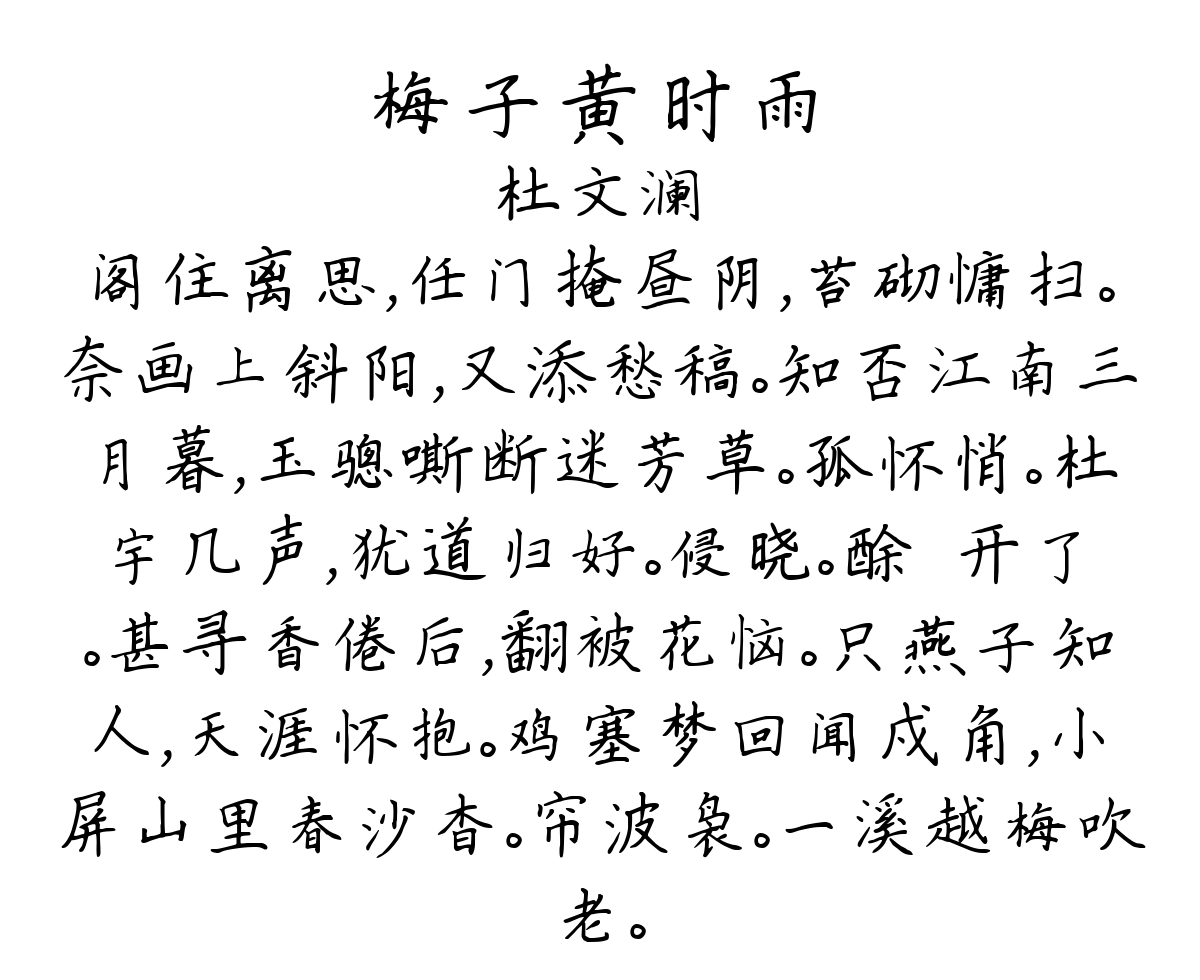 梅子黄时雨
杜文澜
阁住离思,任门掩昼阴,苔砌慵扫。
奈画上斜阳,又添愁稿。知否江南三
月暮,玉骢嘶断迷芳草。孤怀悄。杜
宇几声,犹道归好。侵晓。酴 开了
。甚寻香倦后,翻被花恼。只燕子知
人,天涯怀抱。鸡塞梦回闻戍角,小
屏山里春沙杳。帘波袅。一溪越梅吹
老。